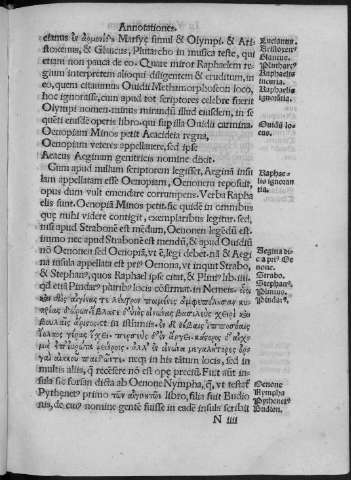 Annotationes.
cianus ἐν ἁρμονίδῃ Marsye simul & Olympi. & Ari
stoxenus, & Glaucus, Plutarcho in musica teste, qui
etiam non pauca de eo. Quare miror Raphaelem re
gium interpretem alioqui diligentem & eruditum, in
eo, quem citauimus Ouidii Methamorphoseon loco,
hoc ignorasse, cum apud tot scriptores celebre fuerit
Olympi nomen. minus mirandū illud eiusdem, in se
quēti eiusdē operis libro. qui sup illa Ouidii carmina.
Oenopiam Minos petit Aeacideia regna,
Oenopiam veteres appellauere, sed ipse
Aeacus Aeginam genitricis nomine dixit.
Cum apud nullum scriptorem legisset, Aeginā insu
lam appellatam esse Oenopiam, Oenonem reposuit,
opus dum vult emendare corrumpens. Verba Rapha
elis sunt. Oenopiā Minos petit. sic quidē in omnibus
que mihi videre contigit, exemplaribus legitur. sed,
nisi apud Strabonē est mēdum, Oenonen legēdū est.
immo nec apud Strabonē est mendū, & apud Ouidiū
nō Oenonē sed Oenopiā, vt ē, legi debet. nā & Aegi
na insula appellata est pri° Oenona, vt inquit Strabo,
& Stephan°, quos Raphael ipse citat, & Plini° lib. iiii.
qd' etiā Pindar° pluribus locis cōfirmat. in Nemeis.
neqȝ in his tātum locis, sed in
multis aliis, q̄ recēsere nō est opę preciū. Fuit autē in-
sula sic forsan dicta ab Oenone Nympha, q̄, vt testaē
Pythenet° primo τῶν αἰγινητῶν libro, filia fuit Budio
nis, de cui° nomine gentē fuisse in eadē insula scribit
N iiii
Lucianus.
Aristoxen°
Glaucus.
Plutharc°
Raphaelis
incuria.
Raphaelis
ignorātia.
Ouidii lo-
cus.
Raphae-
lis ignoran
tia.
Aegina di-
cta pri° Oe
none.
Strabo.
Stephan°.
Plinius.
Pindar°.
Oenone
Nympha
Pythenet°
Budion.